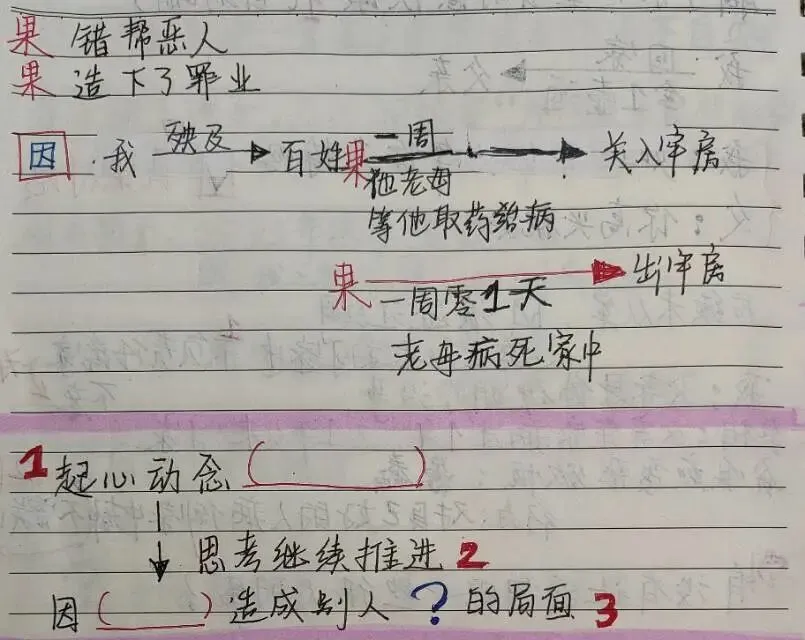 果 错帮恶人
果 造下了罪业
因 我 殃及 百姓 果 一周 关入牢房
他老母
等他取药治病
果 出牢房
一周零1天
老母病死家中
1 起心动念( )
思考继续推进 2
因( )造成别人?的局面 3